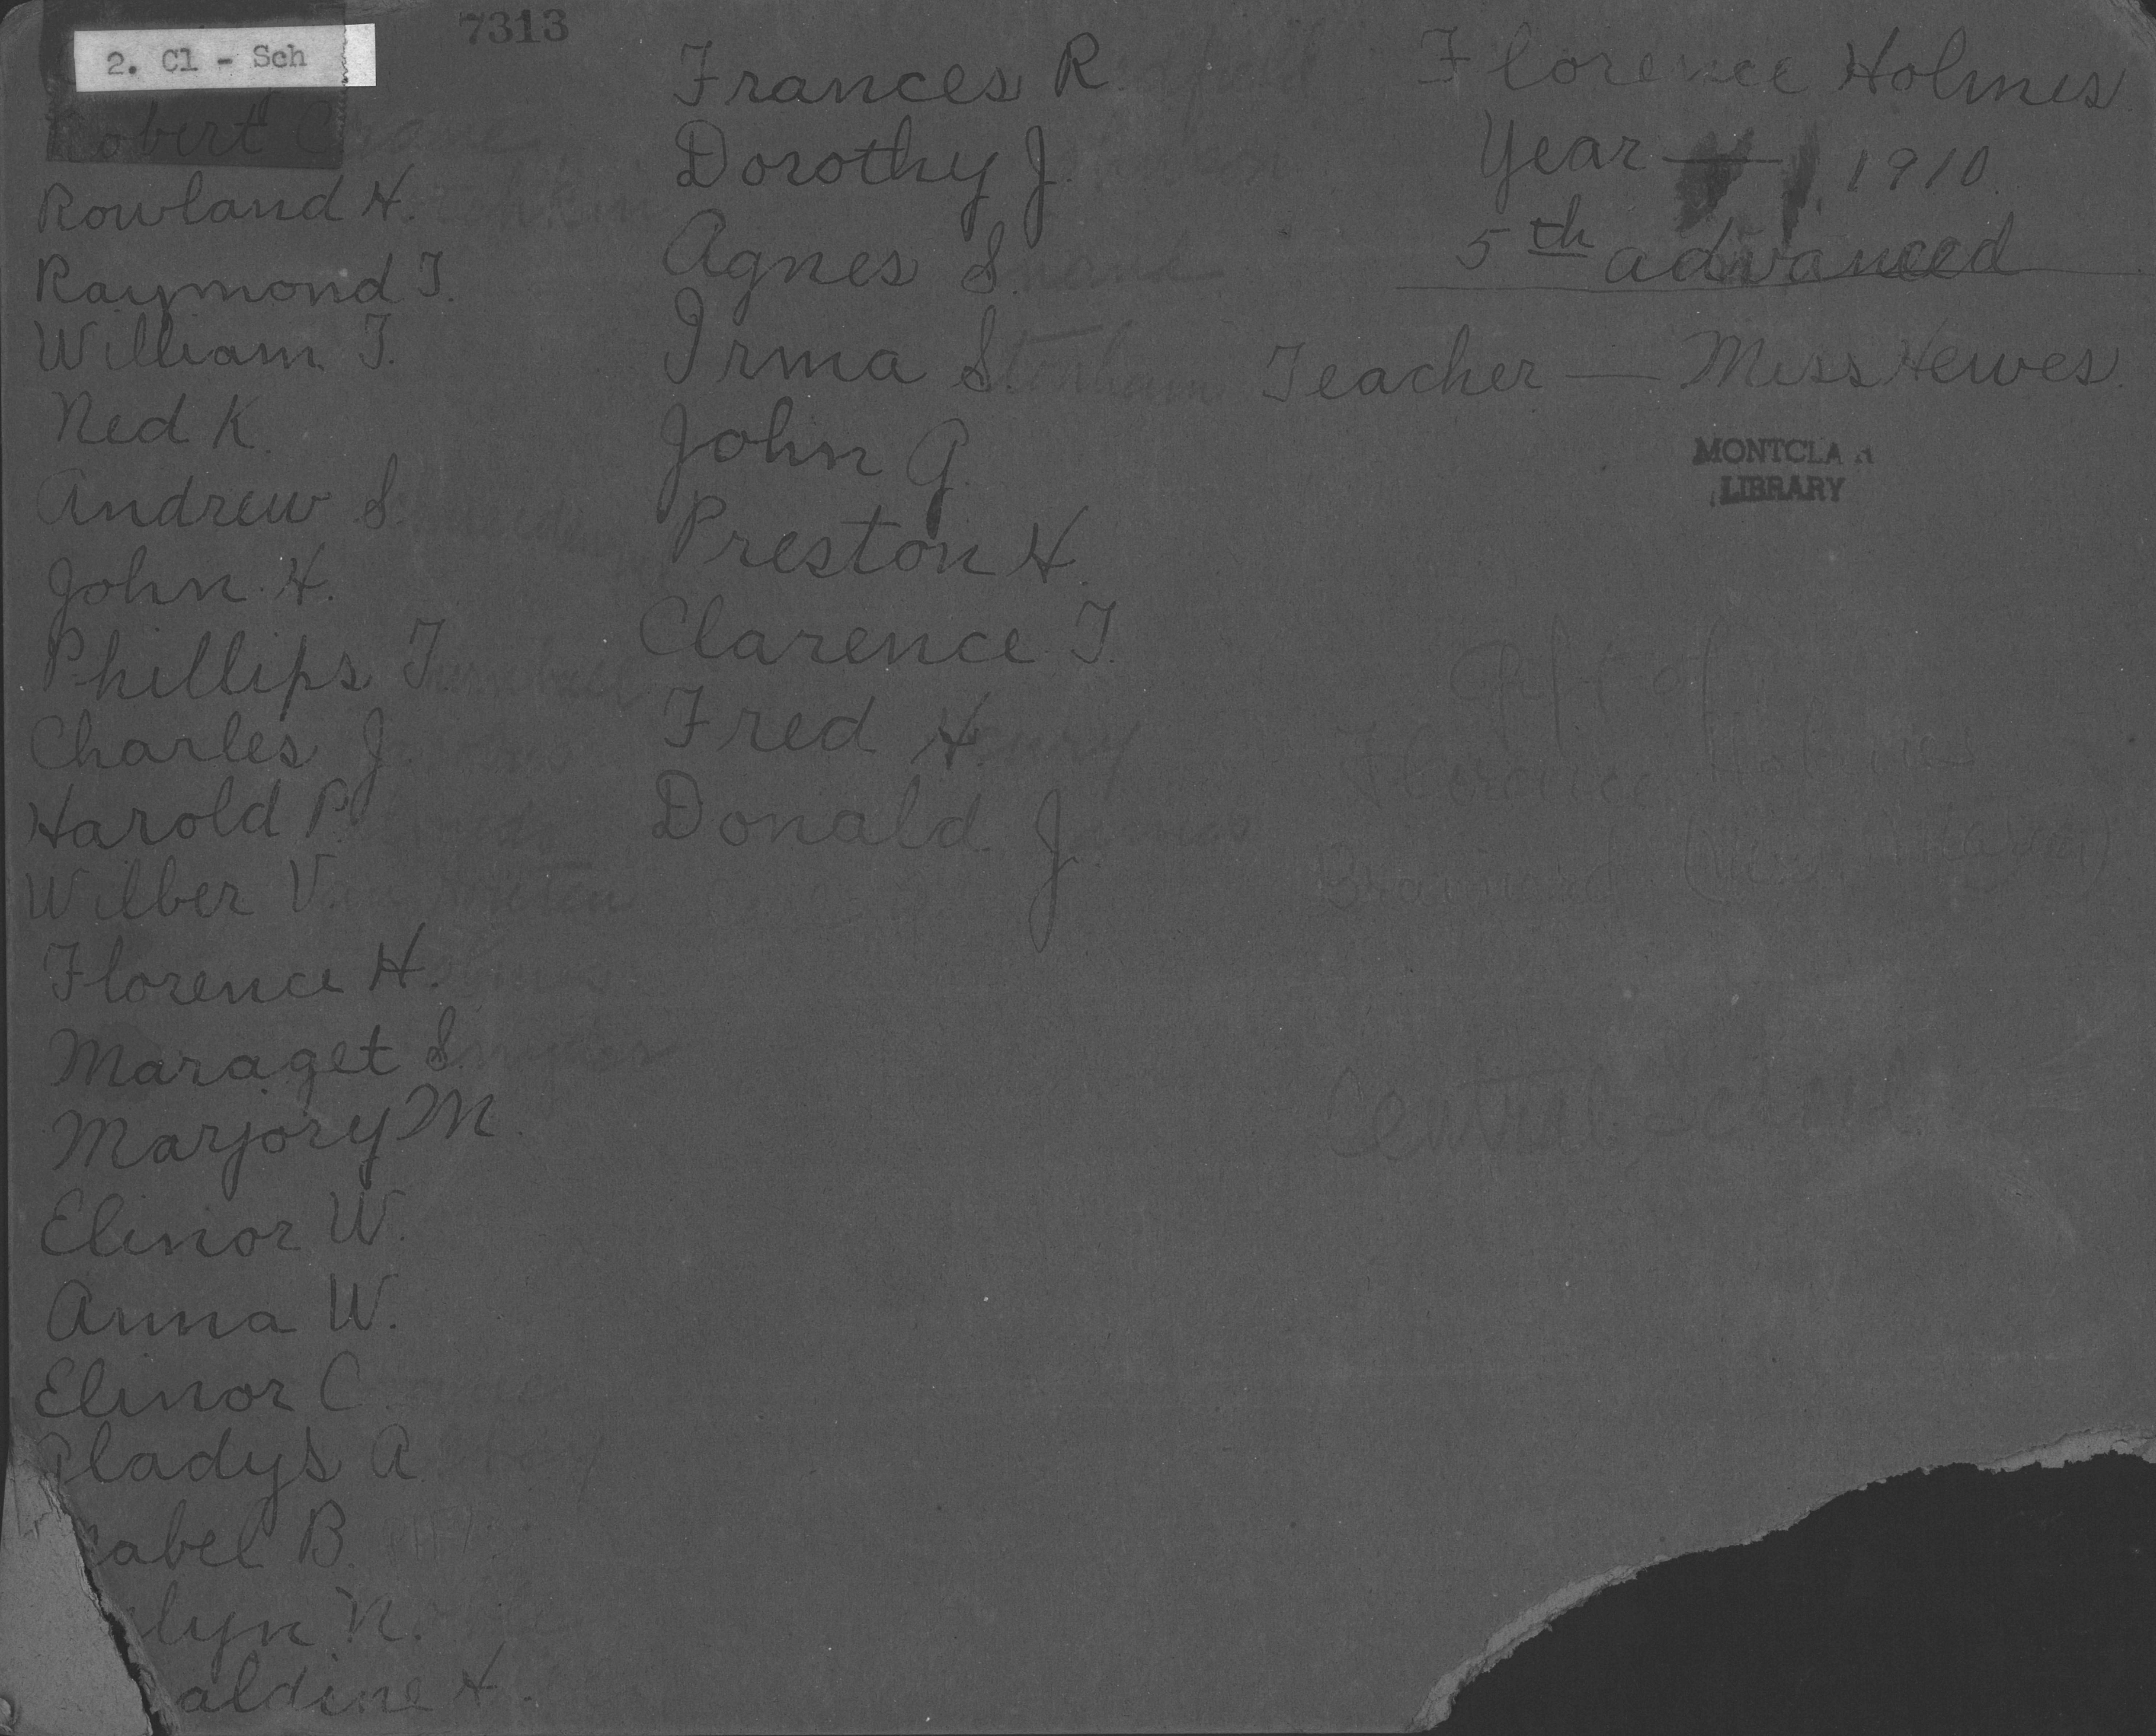 7313
2. Cl - Sch
Robert Crane
Rowland H.
Raymond T.
William T.
Ned K.
Andrew S.
John H.
Phillips Turnbull
Charles J.
Harold P.
Wilber Van
Florence Holmes
Maraget Snyder
Marjory M.
Elinor W.
Anna W.
Elinor C
Gladys A
abel B.
lyn N.
aldine H.
Frances R.
Dorothy J.
Agnes S.
Irma S.
John G.
Preston H.
Clarence T.
Fred Henry
Donald James
Florence Holmes
Year — 1910
5th advanced
Teacher — Miss Hewes.
MONTCLA R
LIBRARY
Gift of
Florence Holmes
Brainerd
Central School